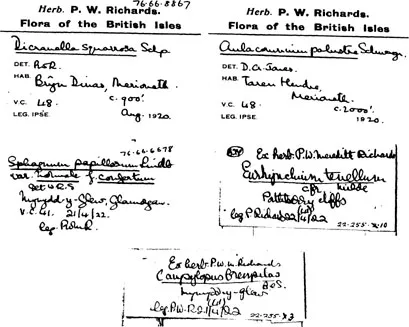 76.66.8867
Herb. P. W. Richards.
Flora of the British Isles
Dicranella squarrosa Schp.
DET. P.W.R.
HAB. Bryn Dinas, Merioneth.
c. 900'.
V.C. 48.
LEG. IPSE Aug. 1920.
Herb. P. W. Richards.
Flora of the British Isles
Aulacomnium palustre Schwaegr.
DET. D.A. Jones.
HAB. Hendre,
Merioneth.
V.C. 48. c. 2000'.
LEG. IPSE 1920.
76.66.6678
Sphagnum papillosum Lindb
var. normale f. confertum
Det W.R.S
Mynydd-y-Glew, Glamorgan.
V.C. 41. 21/4/22.
Leg. P.W.R.
Ex herb. P.W. Meredith Richards
Eurhynchium tenellum
cfr Milde
cliffs
leg P. Richards 22/4/22
22-255-310
Ex herb. P.W. M. Richards
Campylopus brevipilus
B&S.
Mynydd-y-glew
leg. P.W.R. 21/4/22 22-255-83